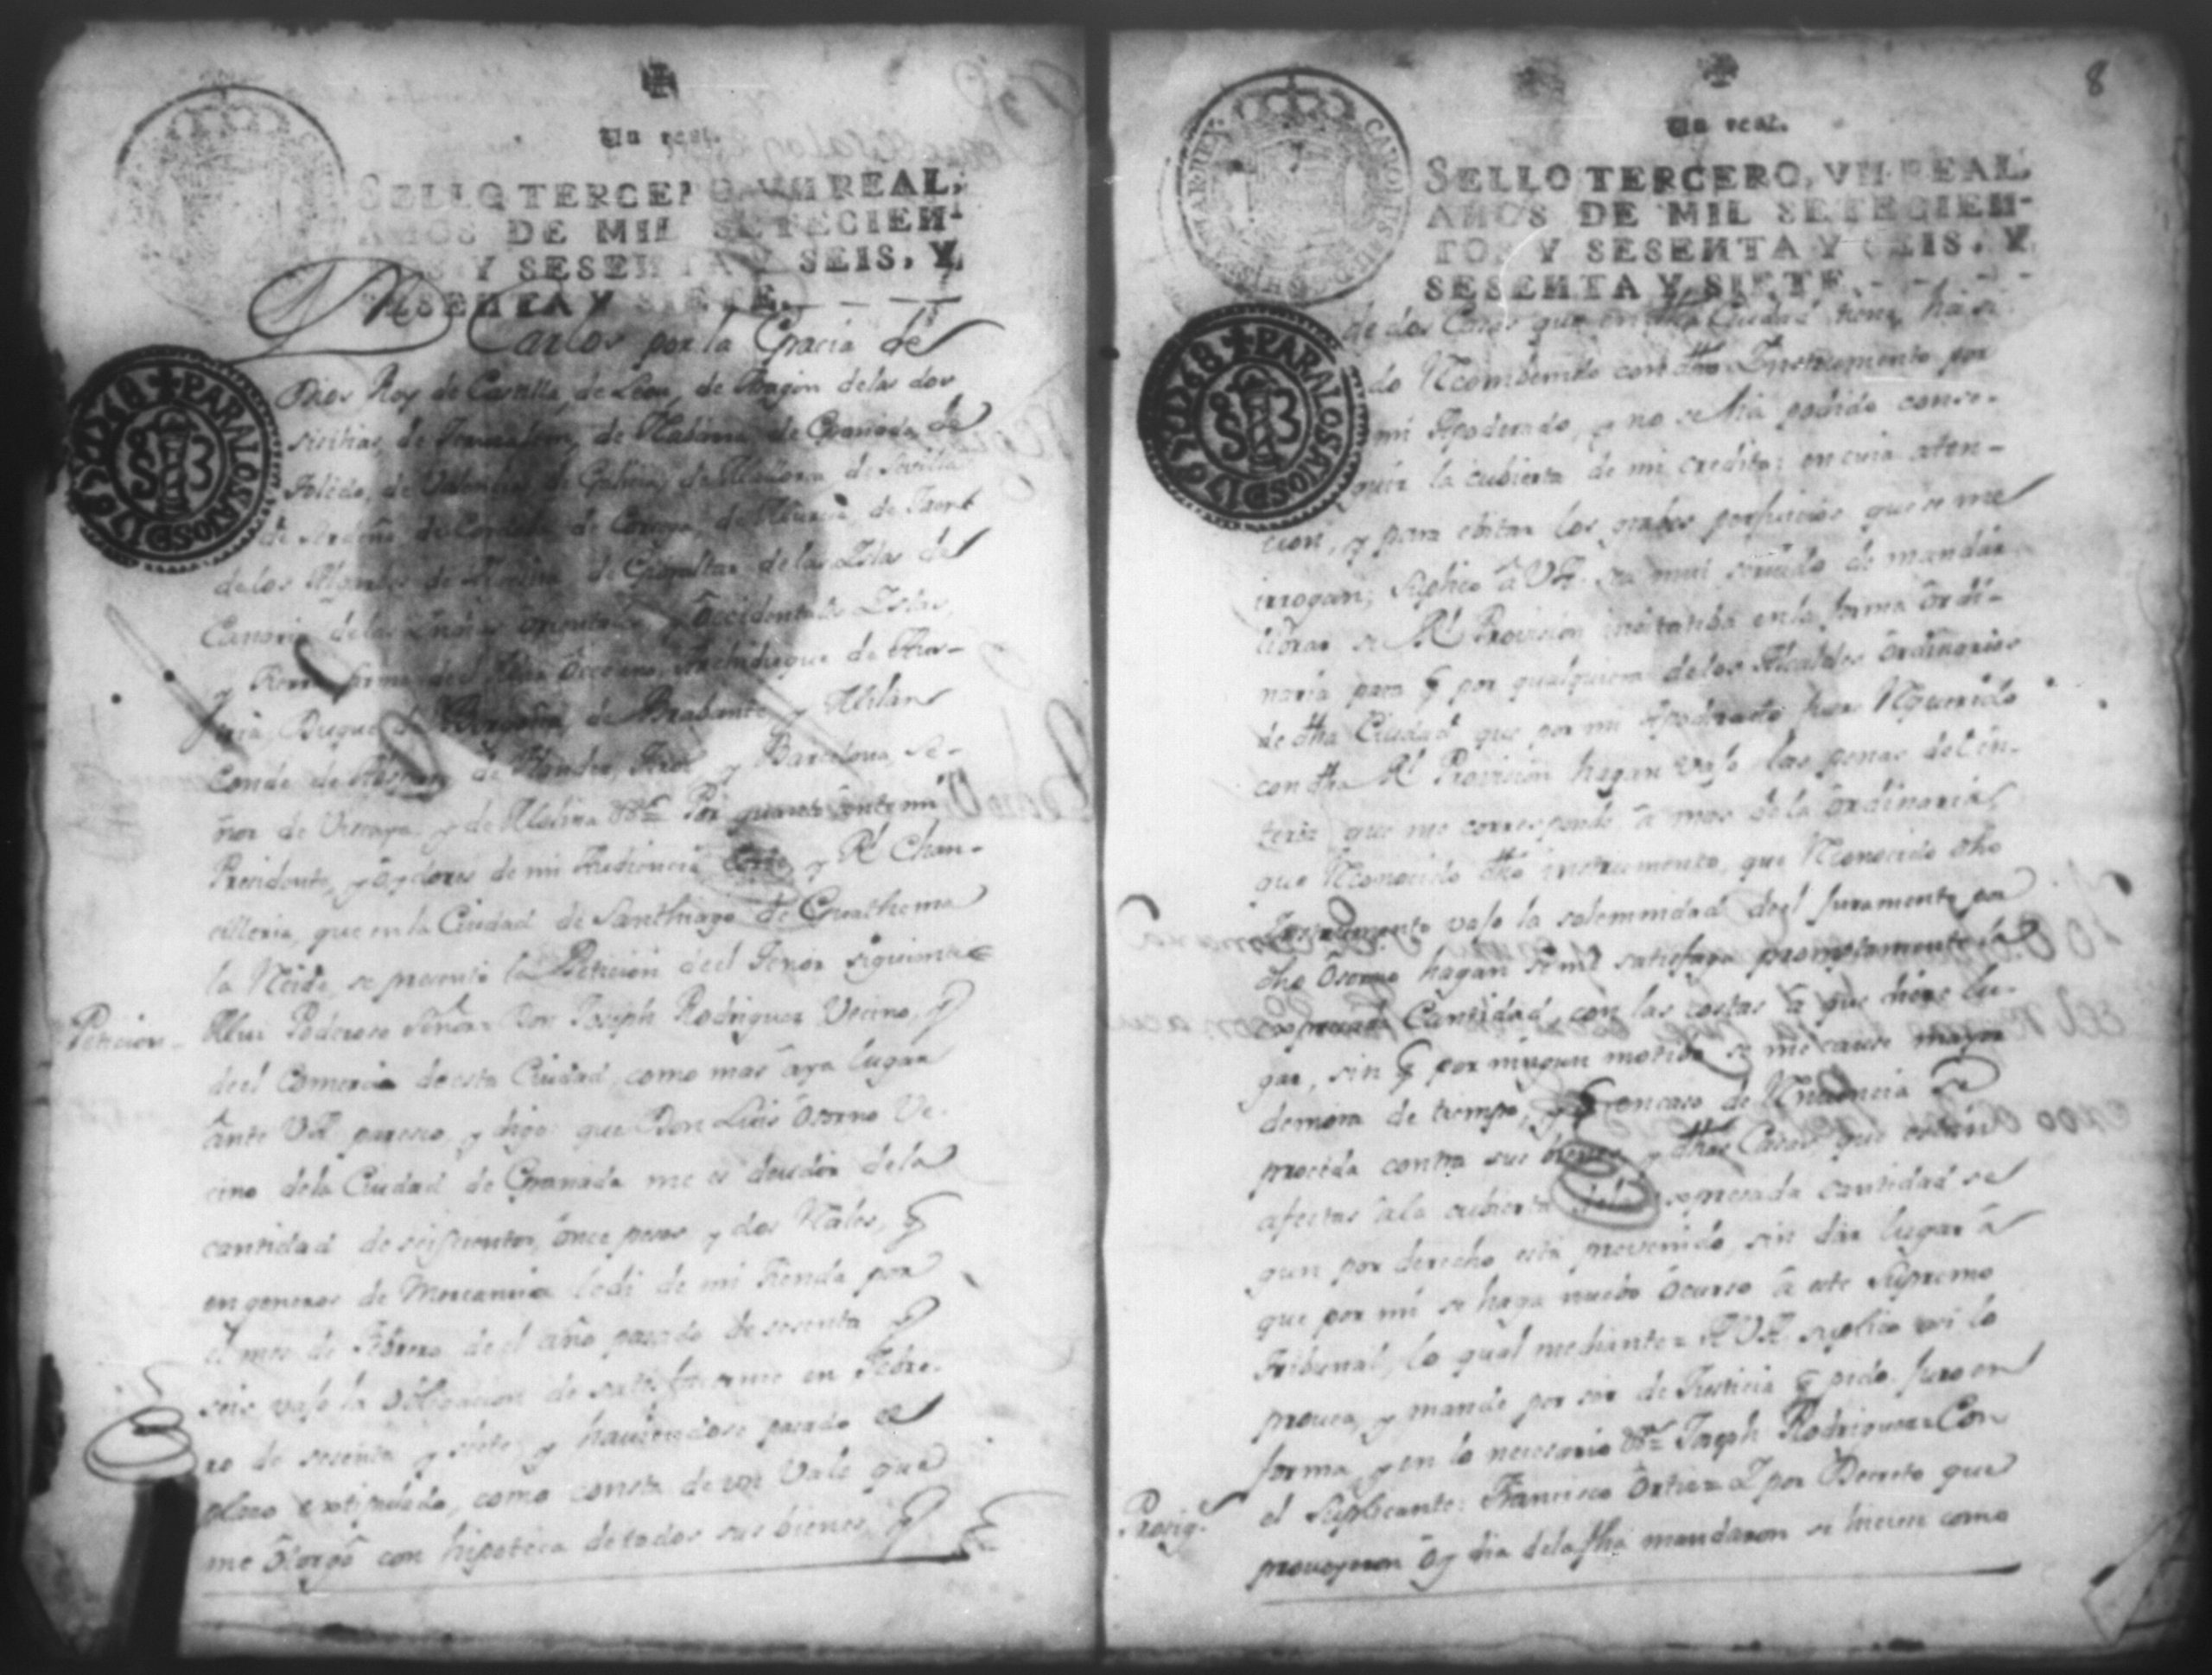 Un real.
SELLO TERCERO, VN REAL,
AÑOS DE MIL SETECIEN-
TOS Y SESENTA Y SEIS, Y
SESENTA Y SIETE.
PARALOSAÑOSDE1767YD1768
Dn Carlos por la Gracia de
Dios Rey de Castilla, de Leon, de Aragon delas dos
sicilias, de Jerusalem, de Nabarra de Granada, de
Toledo, de Valencia, de Galicia, de Mallorca de Sevilla
de Serdeña de Cordoba de Corcega, de Murcia, de Jaen
delos Algarves de Algecira de Gibraltar delas Islas de
Canaria delas Indias orientales y Occidentales Islas,
y tierra firme del Mar Occeano, Archiduque de Aus-
tria, Duque de Borgoña, de Brabante y Milan
Conde de Abspurg de Flandes, Tirol y Barcelona, Se-
ñor de Viscaya, y de Molina &c. Por quanto ânte mi
Presidente, y ôydores de mi Audiencia Corte, y Rl Chan-
cilleria, que en la Ciudad de Santhiago de Guathemala
la Reide, se presentó la Peticion deel Tenor siguiente
Peticion Mui Poderoso Señor Don Joseph Rodriguez Vecino, y
deel Comercio de esta Ciudad, como mas aya lugar
ânte VA paresco, y digo: que Don Luis Osorno Ve-
cino dela Ciudad de Granada me es deudor dela
cantidad de seiscientos, ônce pesos y dos Rales, q
en generos de Mercancia ledi de mi tienda por
el mes de Febrero de el año pasado de sesenta y
seis, vajo la obligacion de satisfacerme en Febre-
ro de sesenta y siete, y haviendose pasado el
plaso extipulado, como consta de un Vale que
me ôtorgô con hipoteca de todos sus bienes, y
8
Un real.
SELLO TERCERO, VN REAL,
AÑOS DE MIL SETECIEN-
TOS Y SESENTA Y SEIS, Y
SESENTA Y SIETE.
CAROLUS III
PARALOSAÑOSDE1767YD1768
de dos Casas que en dha Ciudad tiene, ha si
do Recombenido con dho Instrumento por
mi Apoderado, y no se ha podido conse-
guir la cubierta de mi credito: en cuia aten-
cion, y para ebitar los grabes perjuicios que se me
irrogan; Suplico â VA. sea mui servido de mandar
librar su Rl Provision insitatiba en la forma ôrdi-
naria para q por qualquiera delos Alcaldes ôrdinarios
de dha Ciudad que por mi Apoderado fuere Requerido
con dha Rl Provision hagan vajo las penas del in-
teres que me corresponde â mas dela ôrdinaria,
que Reconocido dho instrumento, que Reconocido dho
Instrumento vajo la solemnidad deel Juramento por
dho Osorno hagan se me satisfaga promptamente la
expresada Cantidad, con las costas â que diere lu-
gar, sin q por ningun motibo se me cause mayor
demora de tiempo, y q en caso de Renuencia se
proceda contra sus bienes, y dhas Casas, que estan
afectas âla cubierta dela expresada cantidad se
gun por derecho esta prevenido, sin dar lugar â
que por mi se haga nuebo Ocurso â este Supremo
Tribunal, lo qual mediante = A VA suplico asi lo
provea, y mande por ser de Justicia q pido. Juro en
forma, y en lo necesario &c. Joseph Rodriguez = Con
el Suplicante: Francisco Ortiz = I por Decreto que
Prosig.e proveyeron ôy dia dela fha mandaron se hiciese como